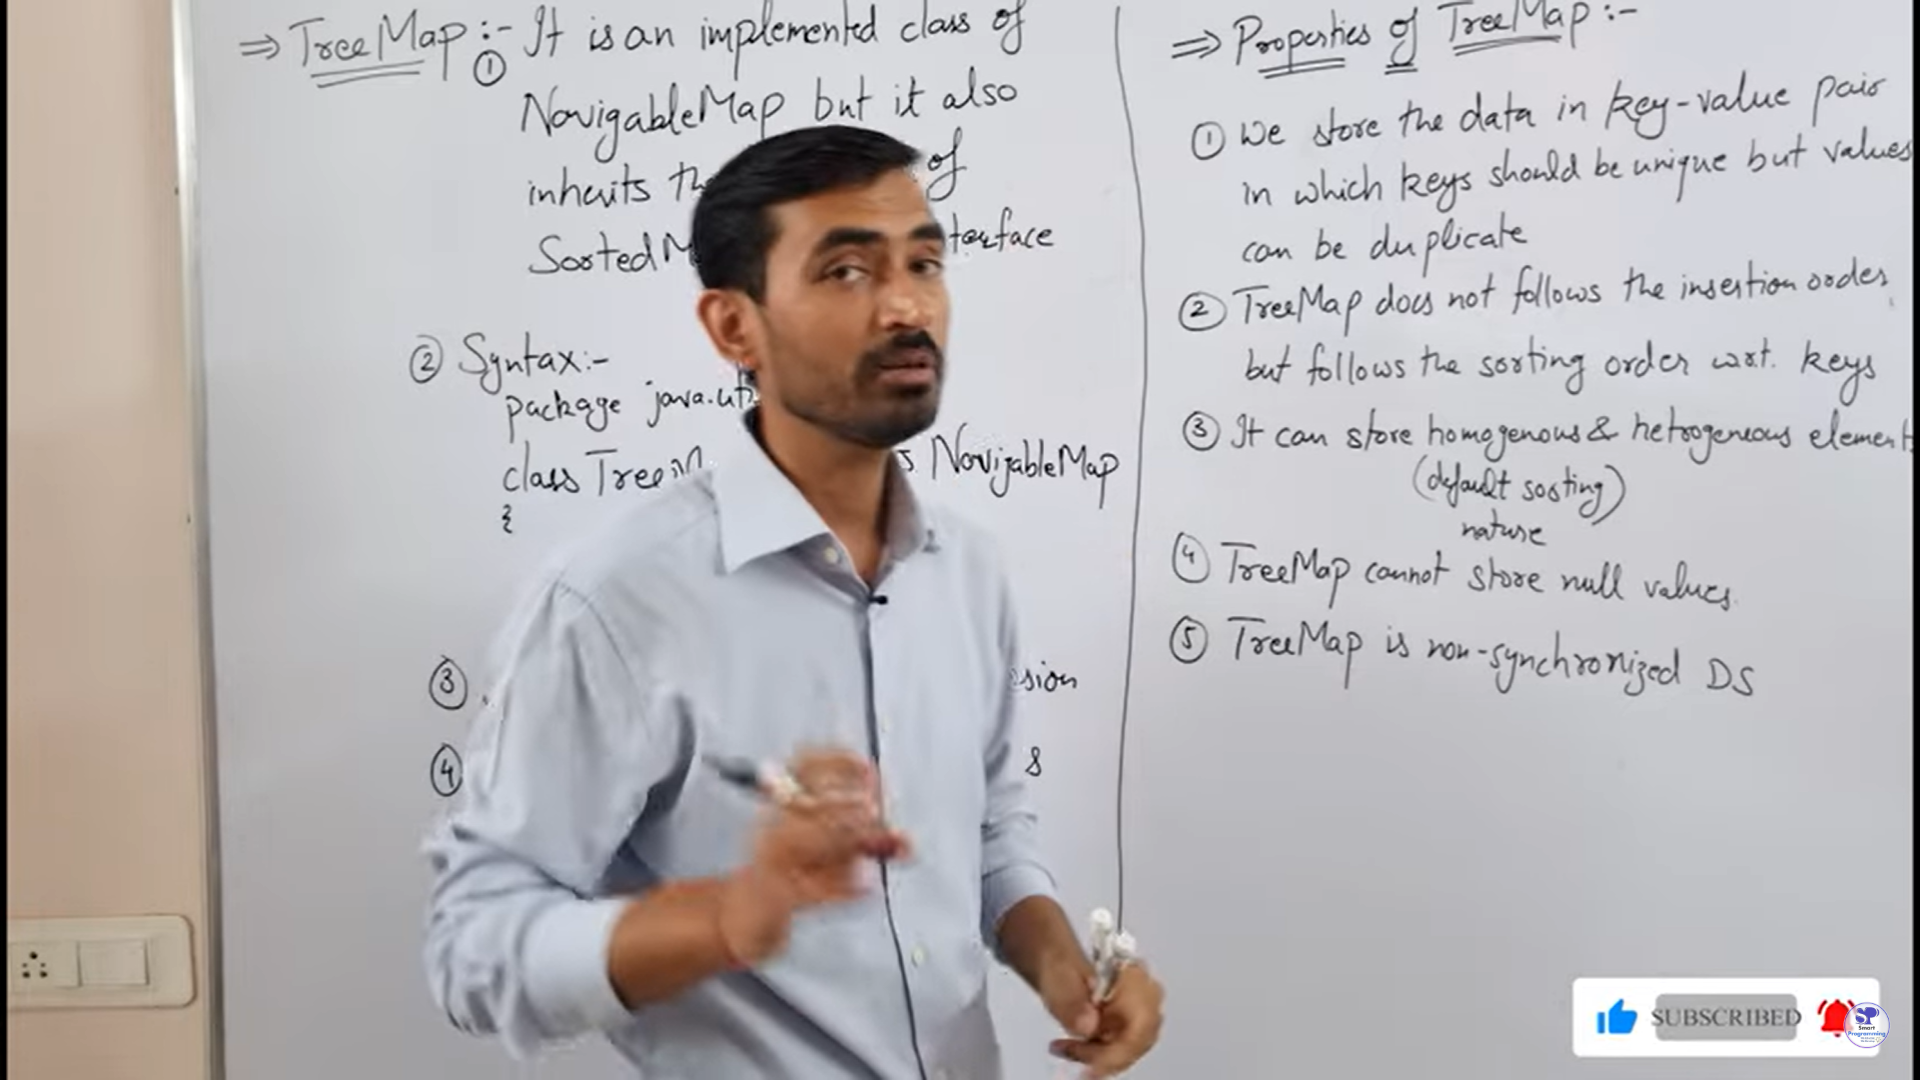 ⇒ TreeMap :- ① It is an implemented class of
NavigableMap but it also
inherits of
② Syntax:-
package
class NavigableMap
{
③
④
⇒ Properties of TreeMap :-
① We store the data in key-value pair
in which keys should be unique but values
can be duplicate
② TreeMap does not follows the insertion order
but follows the sorting order w.r.t. keys
③ It can store homogenous & hetrogeneous element
(default sorting)
nature
④ TreeMap cannot store null values.
⑤ TreeMap is non-synchronized DS
SUBSCRIBED
SP
Smart
Programming